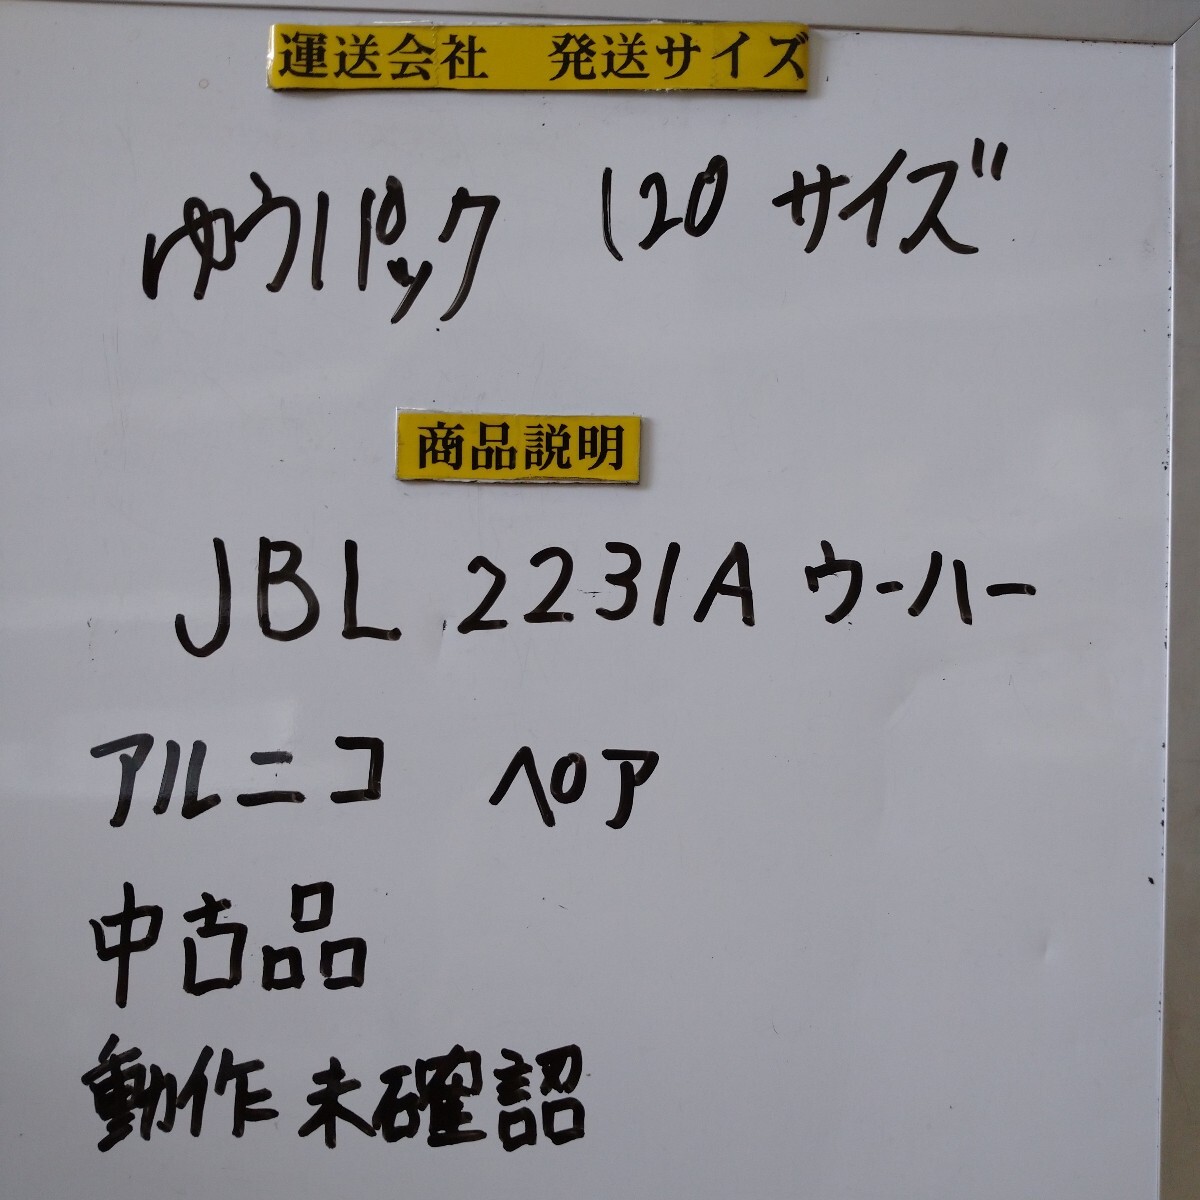 運送会社　発送サイズ
ゆうパック　120 サイズ
商品説明
JBL 2231A ウーハー
アルニコ　ペア
中古品
動作未確認